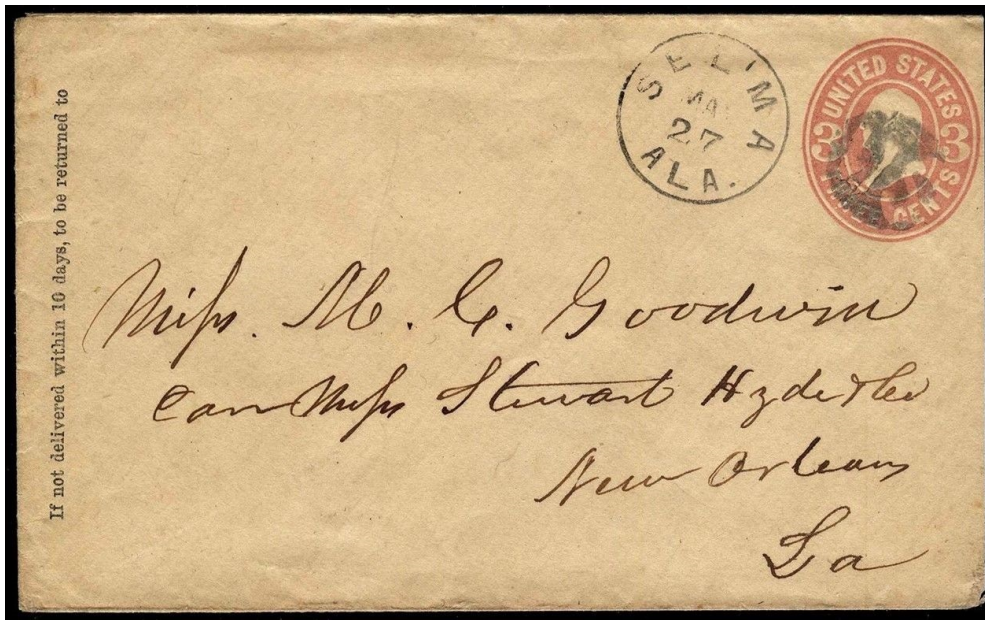 If not delivered within 10 days, to be returned to
SELMA
MA
27
ALA.
UNITED STATES
3 3
CENTS
Miss. M. C. Goodwin
Care Messrs Stewart Hyde & Co
New Orleans
La